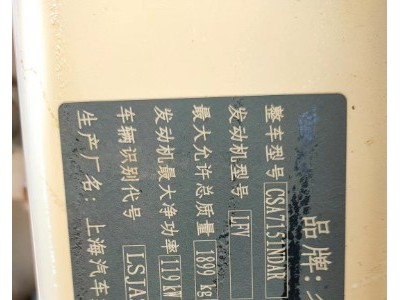 品牌:
整车型号 CSA7151NDAR
发动机型号
最大允许总质量 1899 kg
发动机最大净功率 119 kW
车辆识别代号 LSJA
生产厂名: 上海汽车